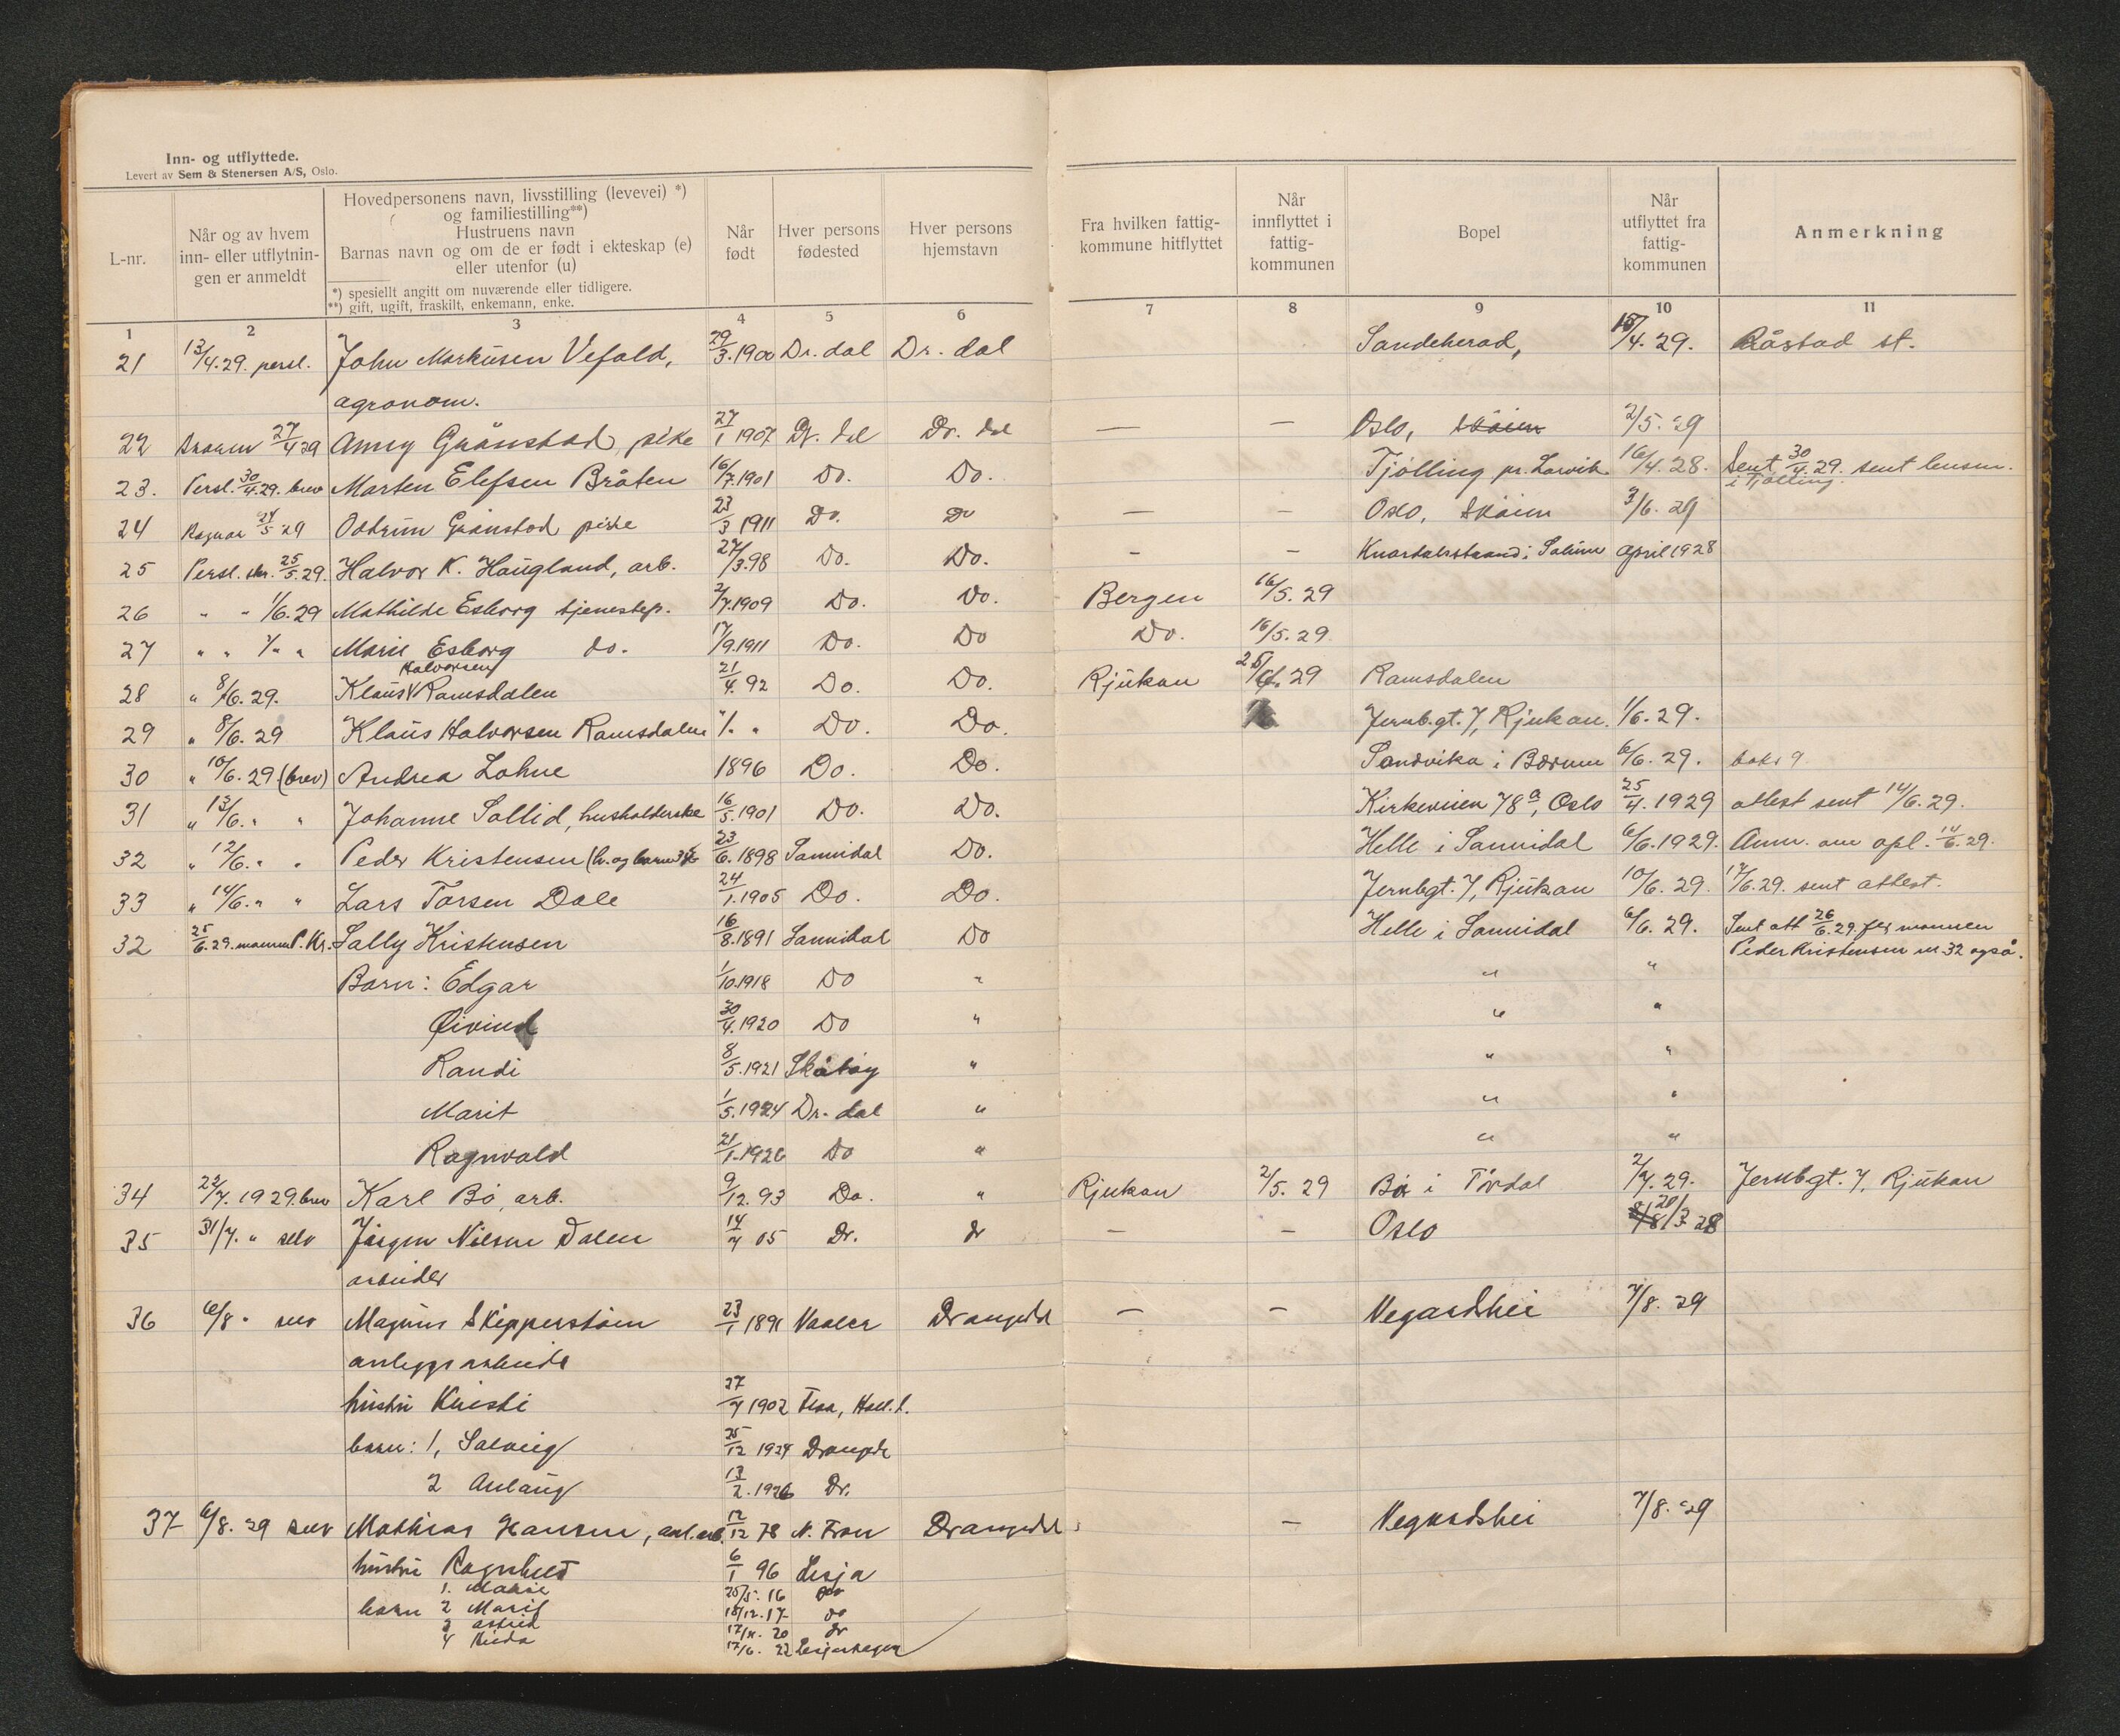 Inn- og utflyttede.
Levert av Sem & Stenersen A/S, Oslo.
L-nr.
Når og av hvem
inn- eller utflytnin-
gen er anmeldt
Hovedpersonens navn, livsstilling (levevei) *)
og familiestilling**)
Hustruens navn
Barnas navn og om de er født i ekteskap (e)
eller utenfor (u)
*) spesiellt angitt om nuværende eller tidligere.
**) gift, ugift, fraskilt, enkemann, enke.
Når
født
Hver persons
fødested
Hver persons
hjemstavn
Fra hvilken fattig-
kommune hitflyttet
Når
innflyttet i
fattig-
kommunen
Bopel
Når
utflyttet fra
fattig-
kommunen
Anmerkning
1 2 3 4 5 6 7 8 9 10 11
21 13/4.29. persl. John Markusen Vefald, 29/3.1900 Dr. dal Dr. dal Sandeherad, /4.29. Råstad st.
agronom.
22 27/4 29 Anny Grånstad, pike 27/1 1907 Dr. dal Dr. dal — — Oslo, Skøien 2/5. 29
23. Persl. 30/4.29. brev Marten Elefsen Bråten 16/7.1901 Do. Do. Tjølling pr. Larvik 16/4.28. Sent 30/4.29. sent lensm.
i Tjølling.
24 Ragnar 24/5 29 Ostrun Grånstad pike 23/3 1911 Do. Do — — Oslo, Skøien 3/6. 29
25 Persl. skr. 25/5.29. Halvor K. Haugland, arb. 27/3.98 Do. Do. - - i Solum april 1928
26 " " 1/6.29 Mathilde Esborg tjenestep. 2/7.1909 Do. Do. Bergen 16/5.29
27 " " 1/" " Marie Esborg do. 17/9.1911 Do. Do Do. 16/5.29
Halvorsen
28 " 8/6.29. Klaus V Ramsdalen 21/4.92 Do. Do. Rjukan 25/ 29 Ramsdalen
29 " 8/6.29 Klaus Halvorsen Ramsdalen "/" " Do. Do. Jernb.gt. 7, Rjukan. 1/6.29.
30 " 10/6.29 (brev) Andrea Lohne 1896 Do. Do. Sandvika i Bærum 6/6.29. boks 9
31 " 13/6. " " Johanne Sollid, husholderske 16/5.1901 Do. Do. Kirkeveien 78a, Oslo 25/4.1929 attest sent 14/6.29.
32 " 12/6. " " Peder Kristensen (h. og barn 23/6.1898 Sannidal Do. Helle i Sannidal 6/6.1929. Anm. om opl. 14/6.29.
33 " 14/6. " " Lars Tarsen Dale 24/1.1905 Do. Do. Jernbgt. 7, Rjukan 10/6.29. 17/6.29. sent attest.
32 25/6.29. mannen P. Kr. Sally Kristensen 16/8.1891 Sannidal Do Helle i Sannidal 6/6.29. Sent att 26/6.29. for mannen
Peder Kristensen nr. 32 også.
Barn: Edgar 1/10.1918 Do " " "
Øivind 30/4.1920 Do " " "
Randi 8/5.1921 Skåtøy " " "
Marit 1/5.1924 Dr. dal " " "
Ragnvald 21/1.1926 Do " " "
34 22/7.1929 brev Karl Bø, arb. 9/12.93 Do. " Rjukan 2/5.29 Bø i Tørdal 2/7.29. Jernbgt. 7, Rjukan
35 31/7. " selv Jørgen Nilsen Dalen 14/7 05 Dr. dr — — Oslo 20/3 28
arbeider
36 6/8 " selv Magnus Skipperstøen 23/1 1891 Vaaler Drangedal — — Vegardshei 7/8. 29
anleggsarbeide
hustru Kristi 27/7 1902 Flaa, Hall.d.
barn: 1, Solveig 25/12 1924 Drangedl
2 Aslaug 13/2.1926 Dr.
37 6/8. 29 selv Mathias Hansen, anl.arb. 12/12 78 N. Fron Drangedal — Vegardshei 7/8. 29
hustru Ragnhild 6/1 96 Lesja
1. 25/5. 16 do
barn 2 Marit 18/12.17 do
3 Astrid 17/11. 20 dr
4 17/6. 22 Lesjaskogen